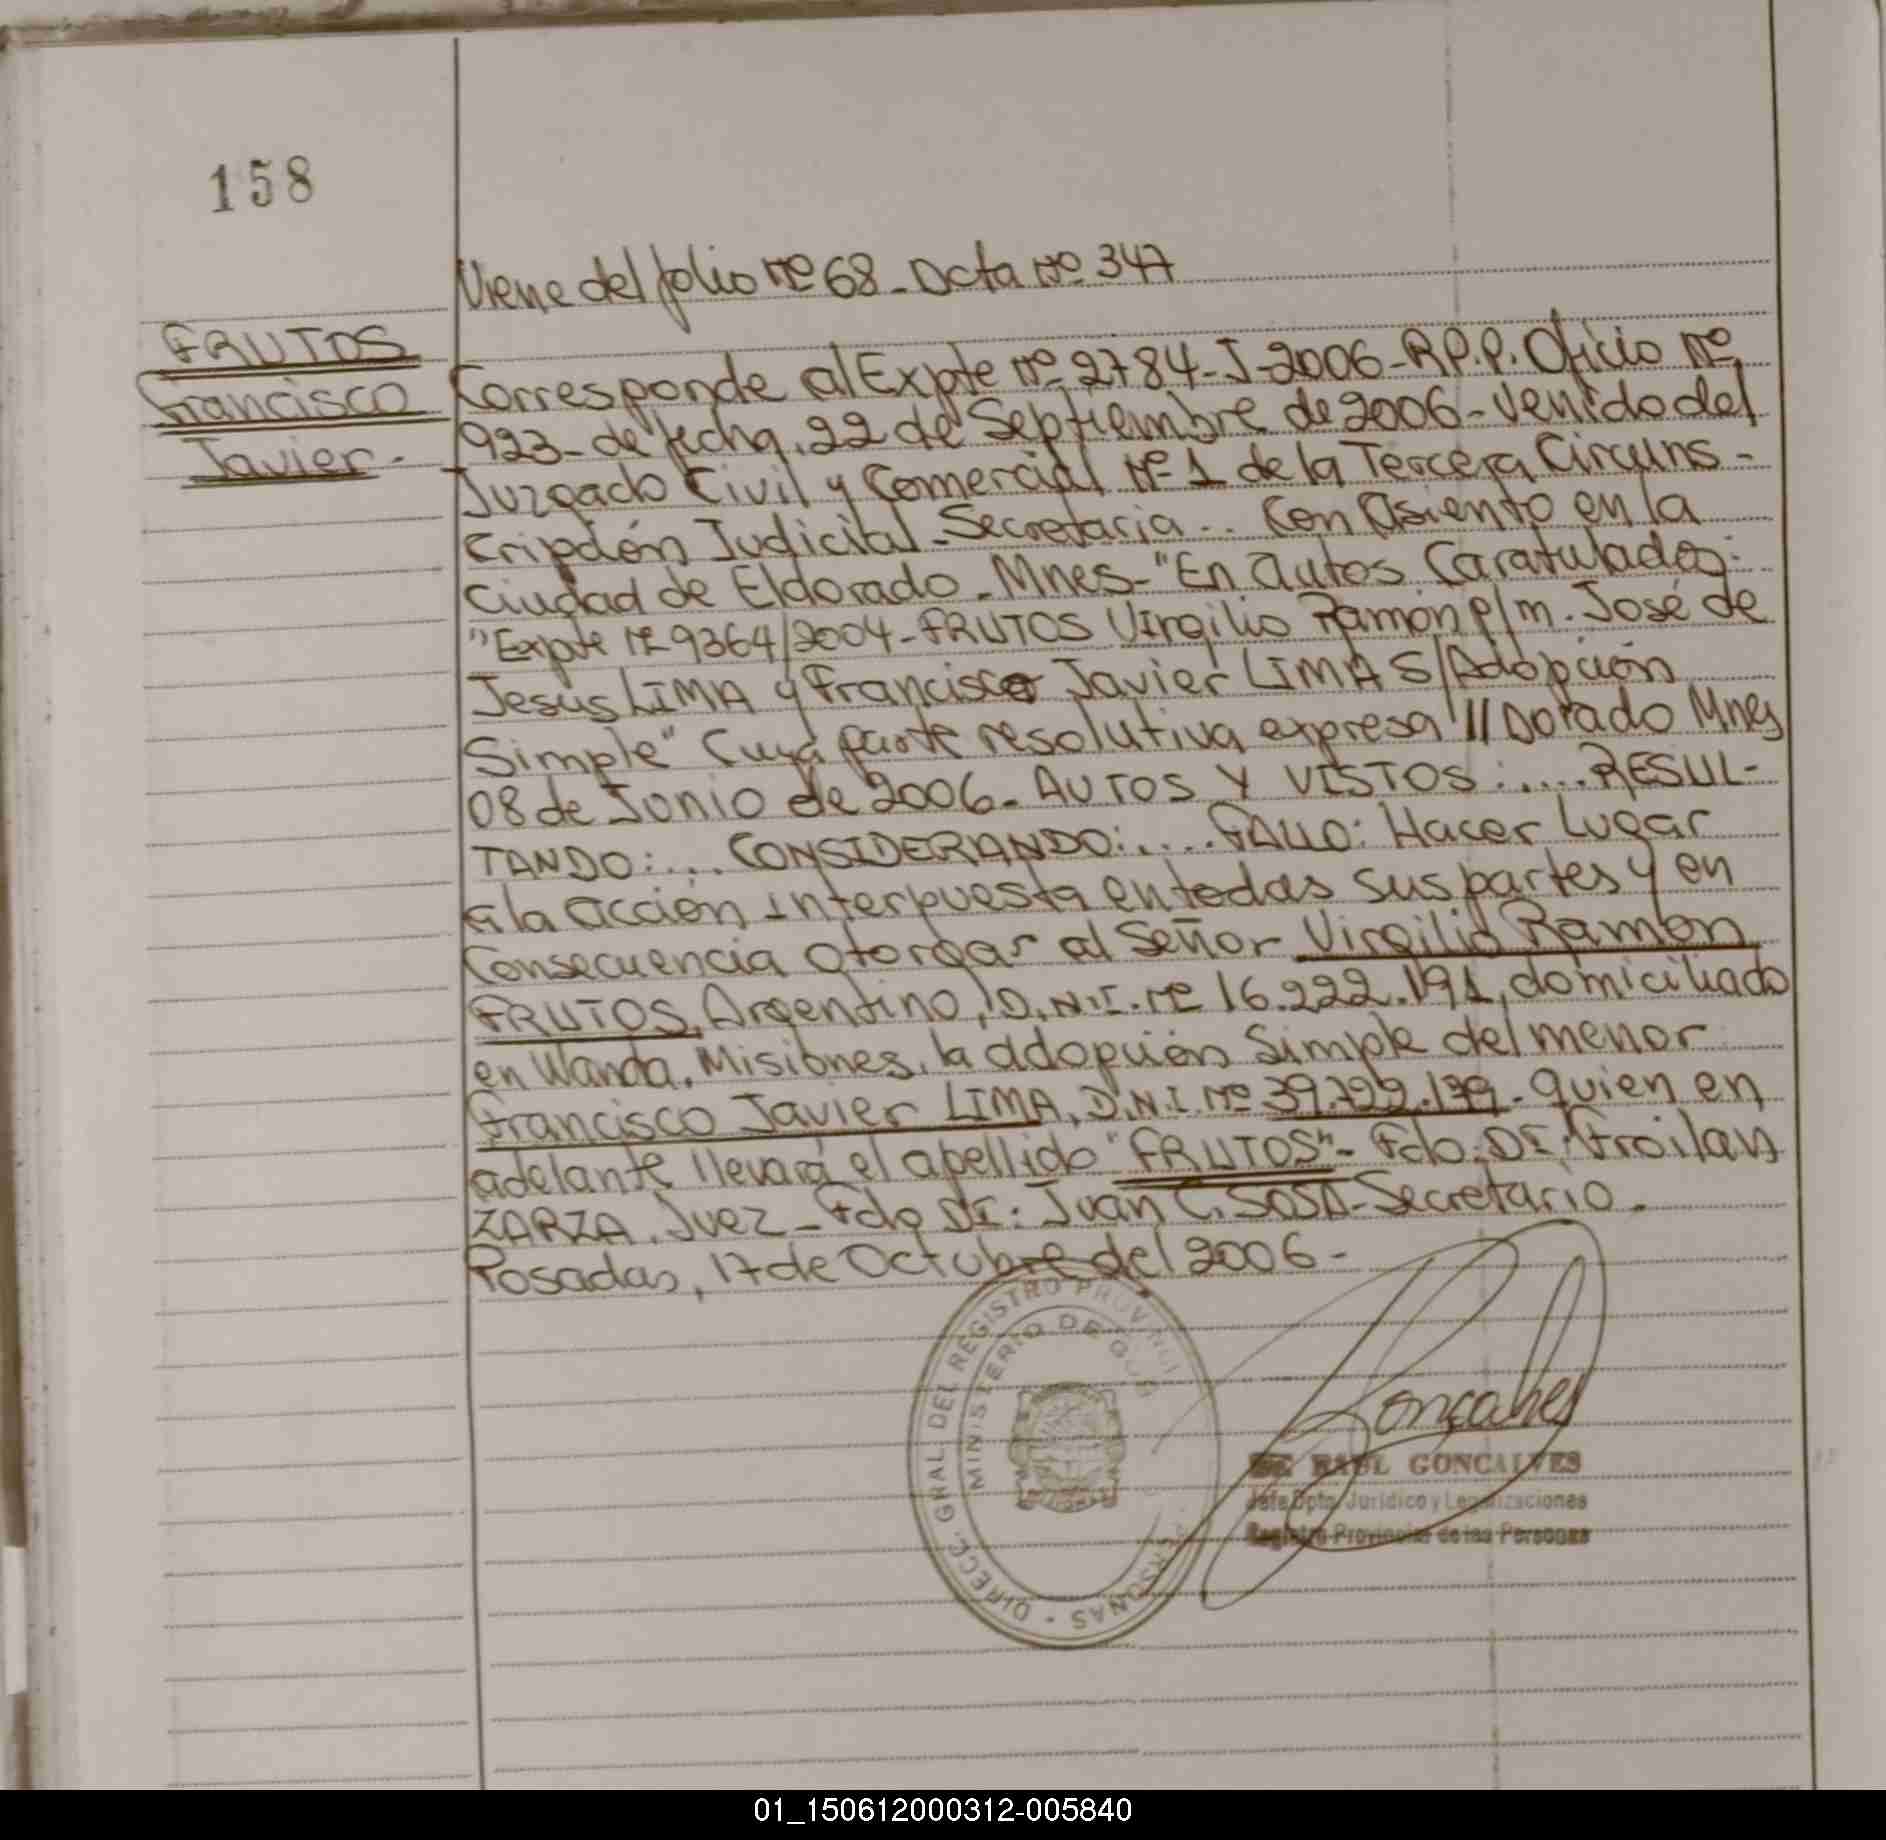 158
Viene del folio Nº 68 - Acta Nº 347
FRUTOS
Francisco
Javier.-
Corresponde al Expte Nº 2784-J-2006-R.P.P. Oficio Nº
923- de fecha, 22 de Septiembre de 2006- venido del
Juzgado Civil y Comercial Nº 1 de la Tercera Circuns-
cripción Judicial- Secretaria... Con Asiento en la
Ciudad de Eldorado- Mnes- "En autos Caratulados:
"Expte Nº 9364/2004- FRUTOS Virgilio Ramón p/m. José de
Jesús LIMA y Francisco Javier LIMA S/Adopción
Simple" Cuya parte resolutiva expresa "//Dorado Mnes
08 de Junio de 2006- AUTOS Y VISTOS:.... RESUL-
TANDO:... CONSIDERANDO:.... FALLO: Hacer Lugar
a la acción interpuesta en todas sus partes y en
Consecuencia otorgar al Señor Virgilio Ramón
FRUTOS, Argentino, D.N.I. Nº 16.222.191, domiciliado
en Wanda, Misiones, la adopción Simple del menor
Francisco Javier LIMA, D.N.I. Nº 39.722.139- quien en
adelante llevará el apellido "FRUTOS"- Fdo: DI: Froilan
ZARZA, Juez- Fdo DI: Juan C. SOSA- Secretario.
Posadas, 17 de Octubre del 2006-
DIRECC. GRAL DEL REGISTRO PROVINCI PERSONAS
MINISTERIO DE GOB
Goncalves
RAUL GONCALVES
Jefe Dpto Juridico y Legalizaciones
Registro Provincial de las Personas
01_150612000312-005840